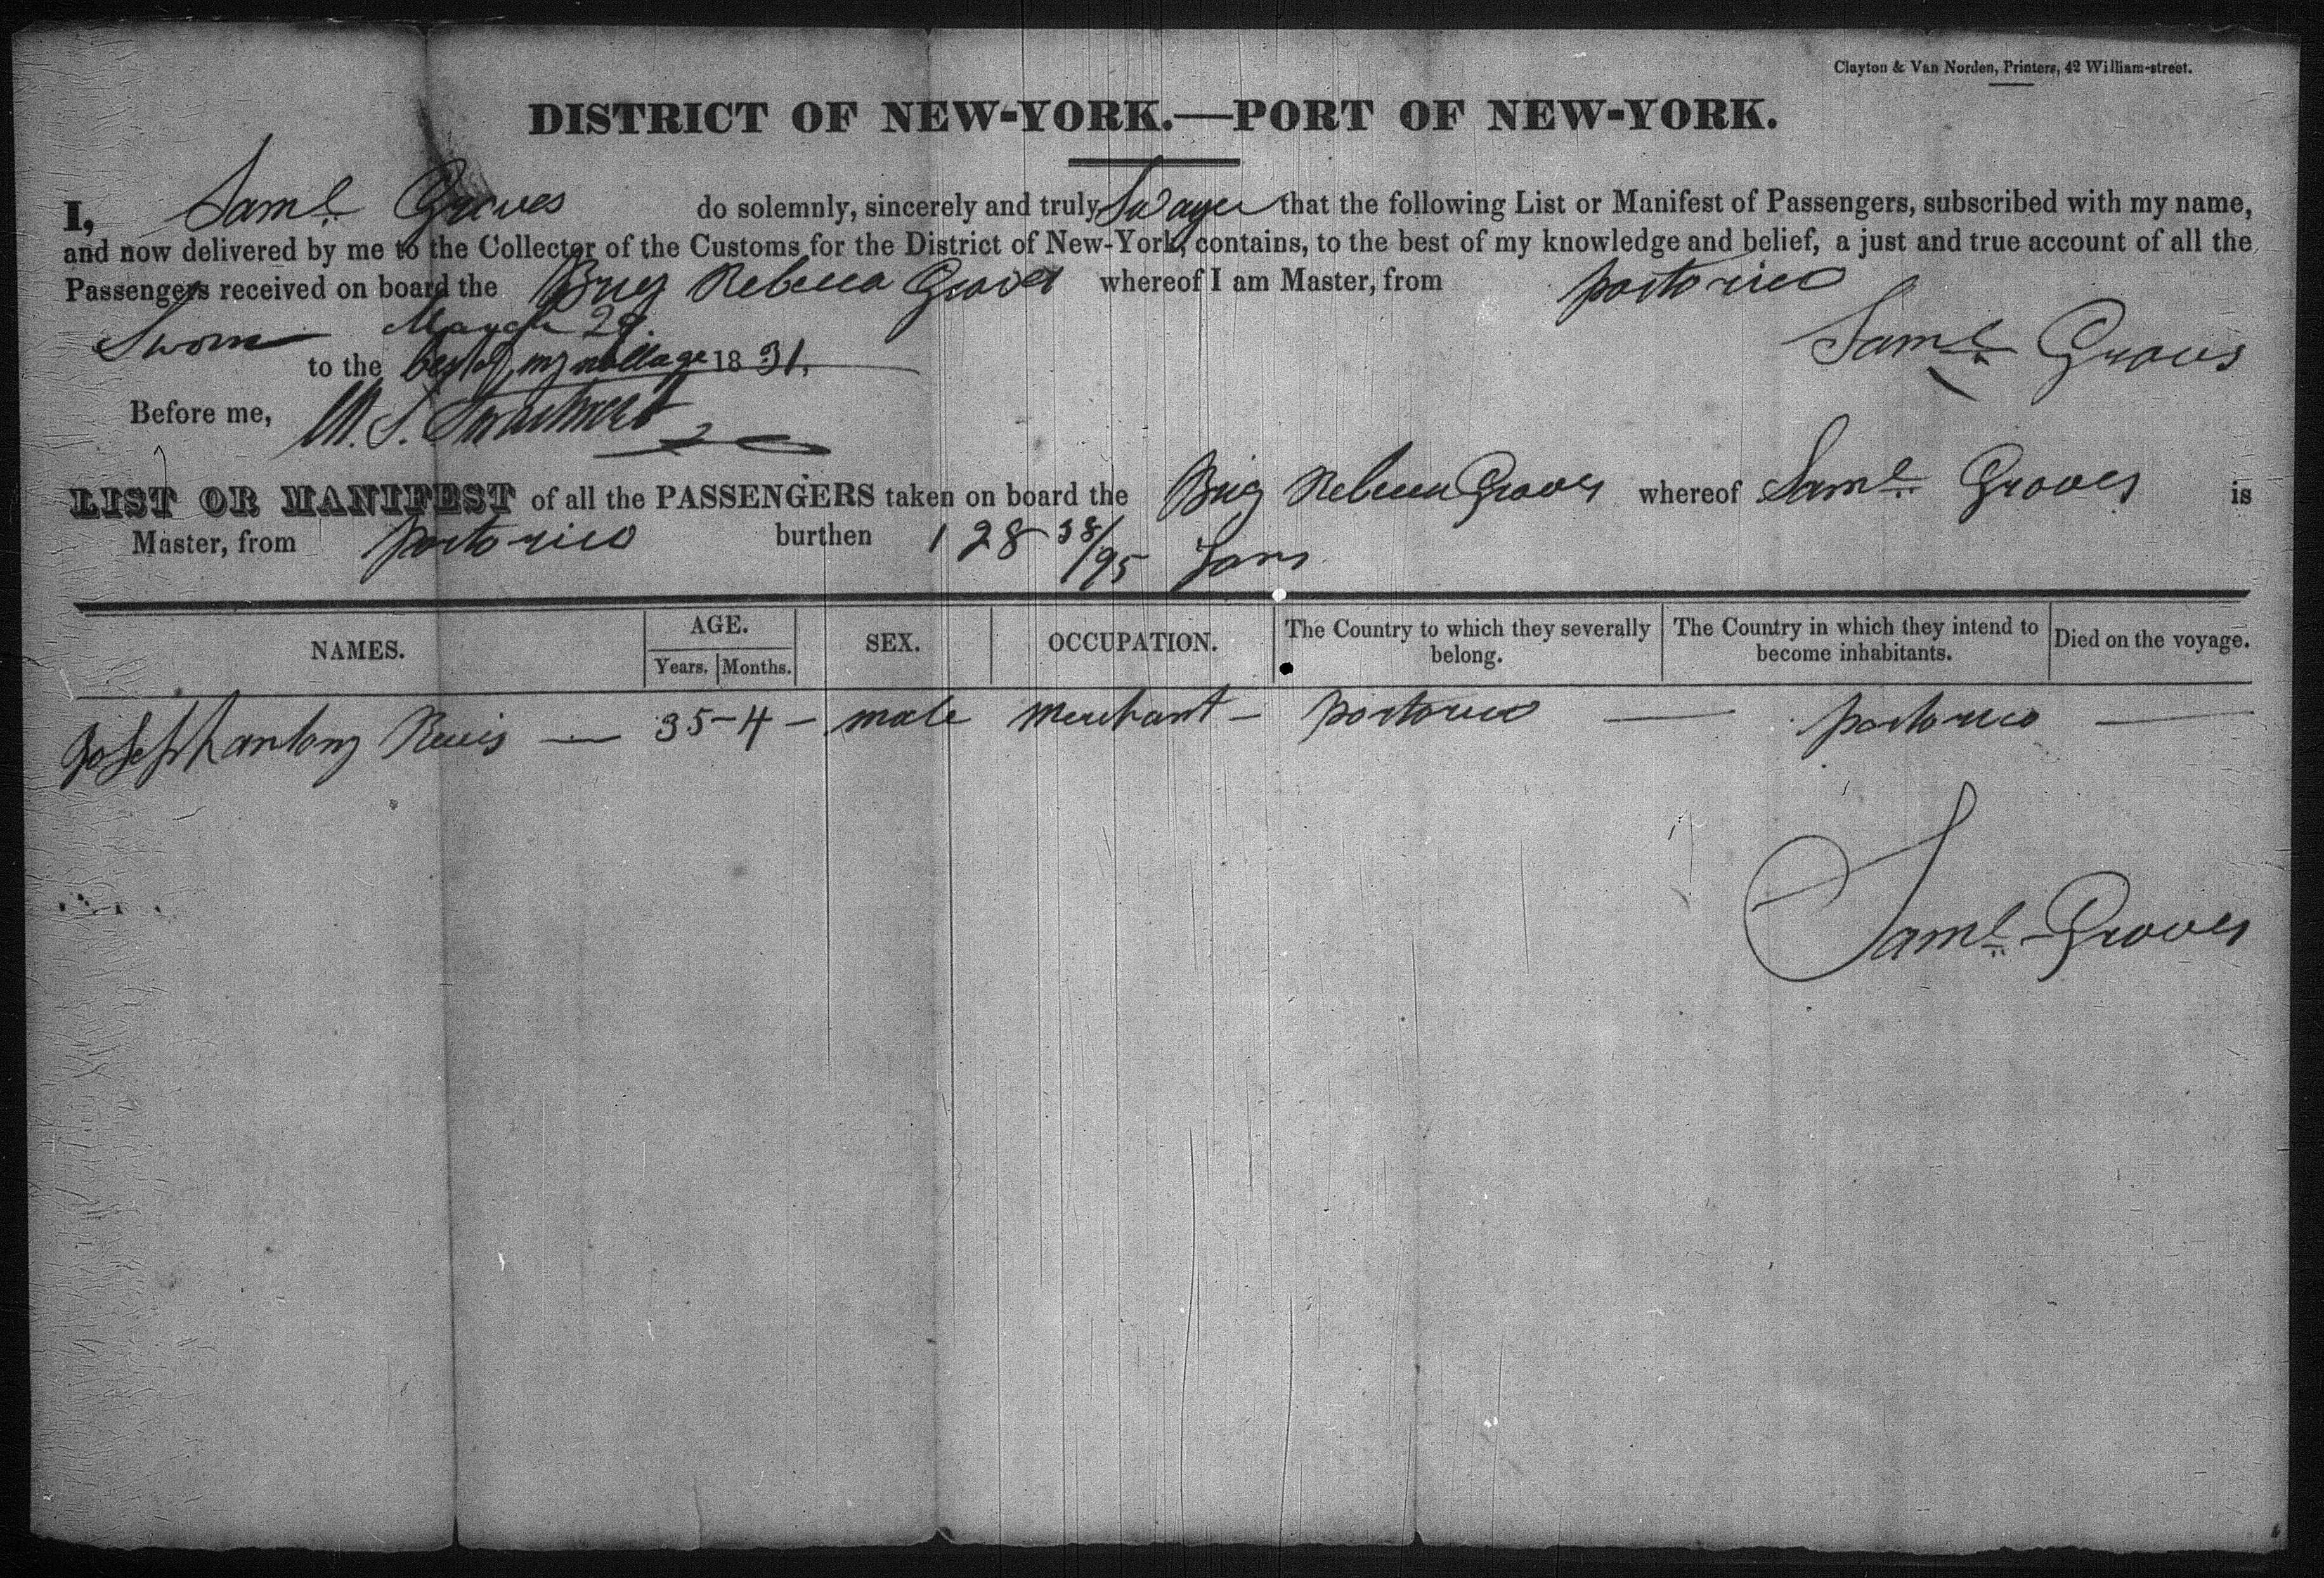 Clayton & Van Norden, Printers, 42 William-street.
DISTRICT OF NEW-YORK.—PORT OF NEW-YORK.
I, Saml Groves do solemnly, sincerely and truly that the following List or Manifest of Passengers, subscribed with my name,
and now delivered by me to the Collector of the Customs for the District of New-York, contains, to the best of my knowledge and belief, a just and true account of all the
Passengers received on board the Brig Rebecca Groves whereof I am Master, from portorico
Sworn March 29. Saml Groves
to the best of my nollage 1831,
Before me,
LIST OR MANIFEST of all the PASSENGERS taken on board the Brig Rebecca Groves whereof Saml Groves is
Master, from portorico burthen 128 38/95 Tons
NAMES. AGE. Years. Months. SEX. OCCUPATION. The Country to which they severally belong. The Country in which they intend to become inhabitants. Died on the voyage.
Joseph antony — 35-4- male merchant - portorico — portorico —
Saml Groves